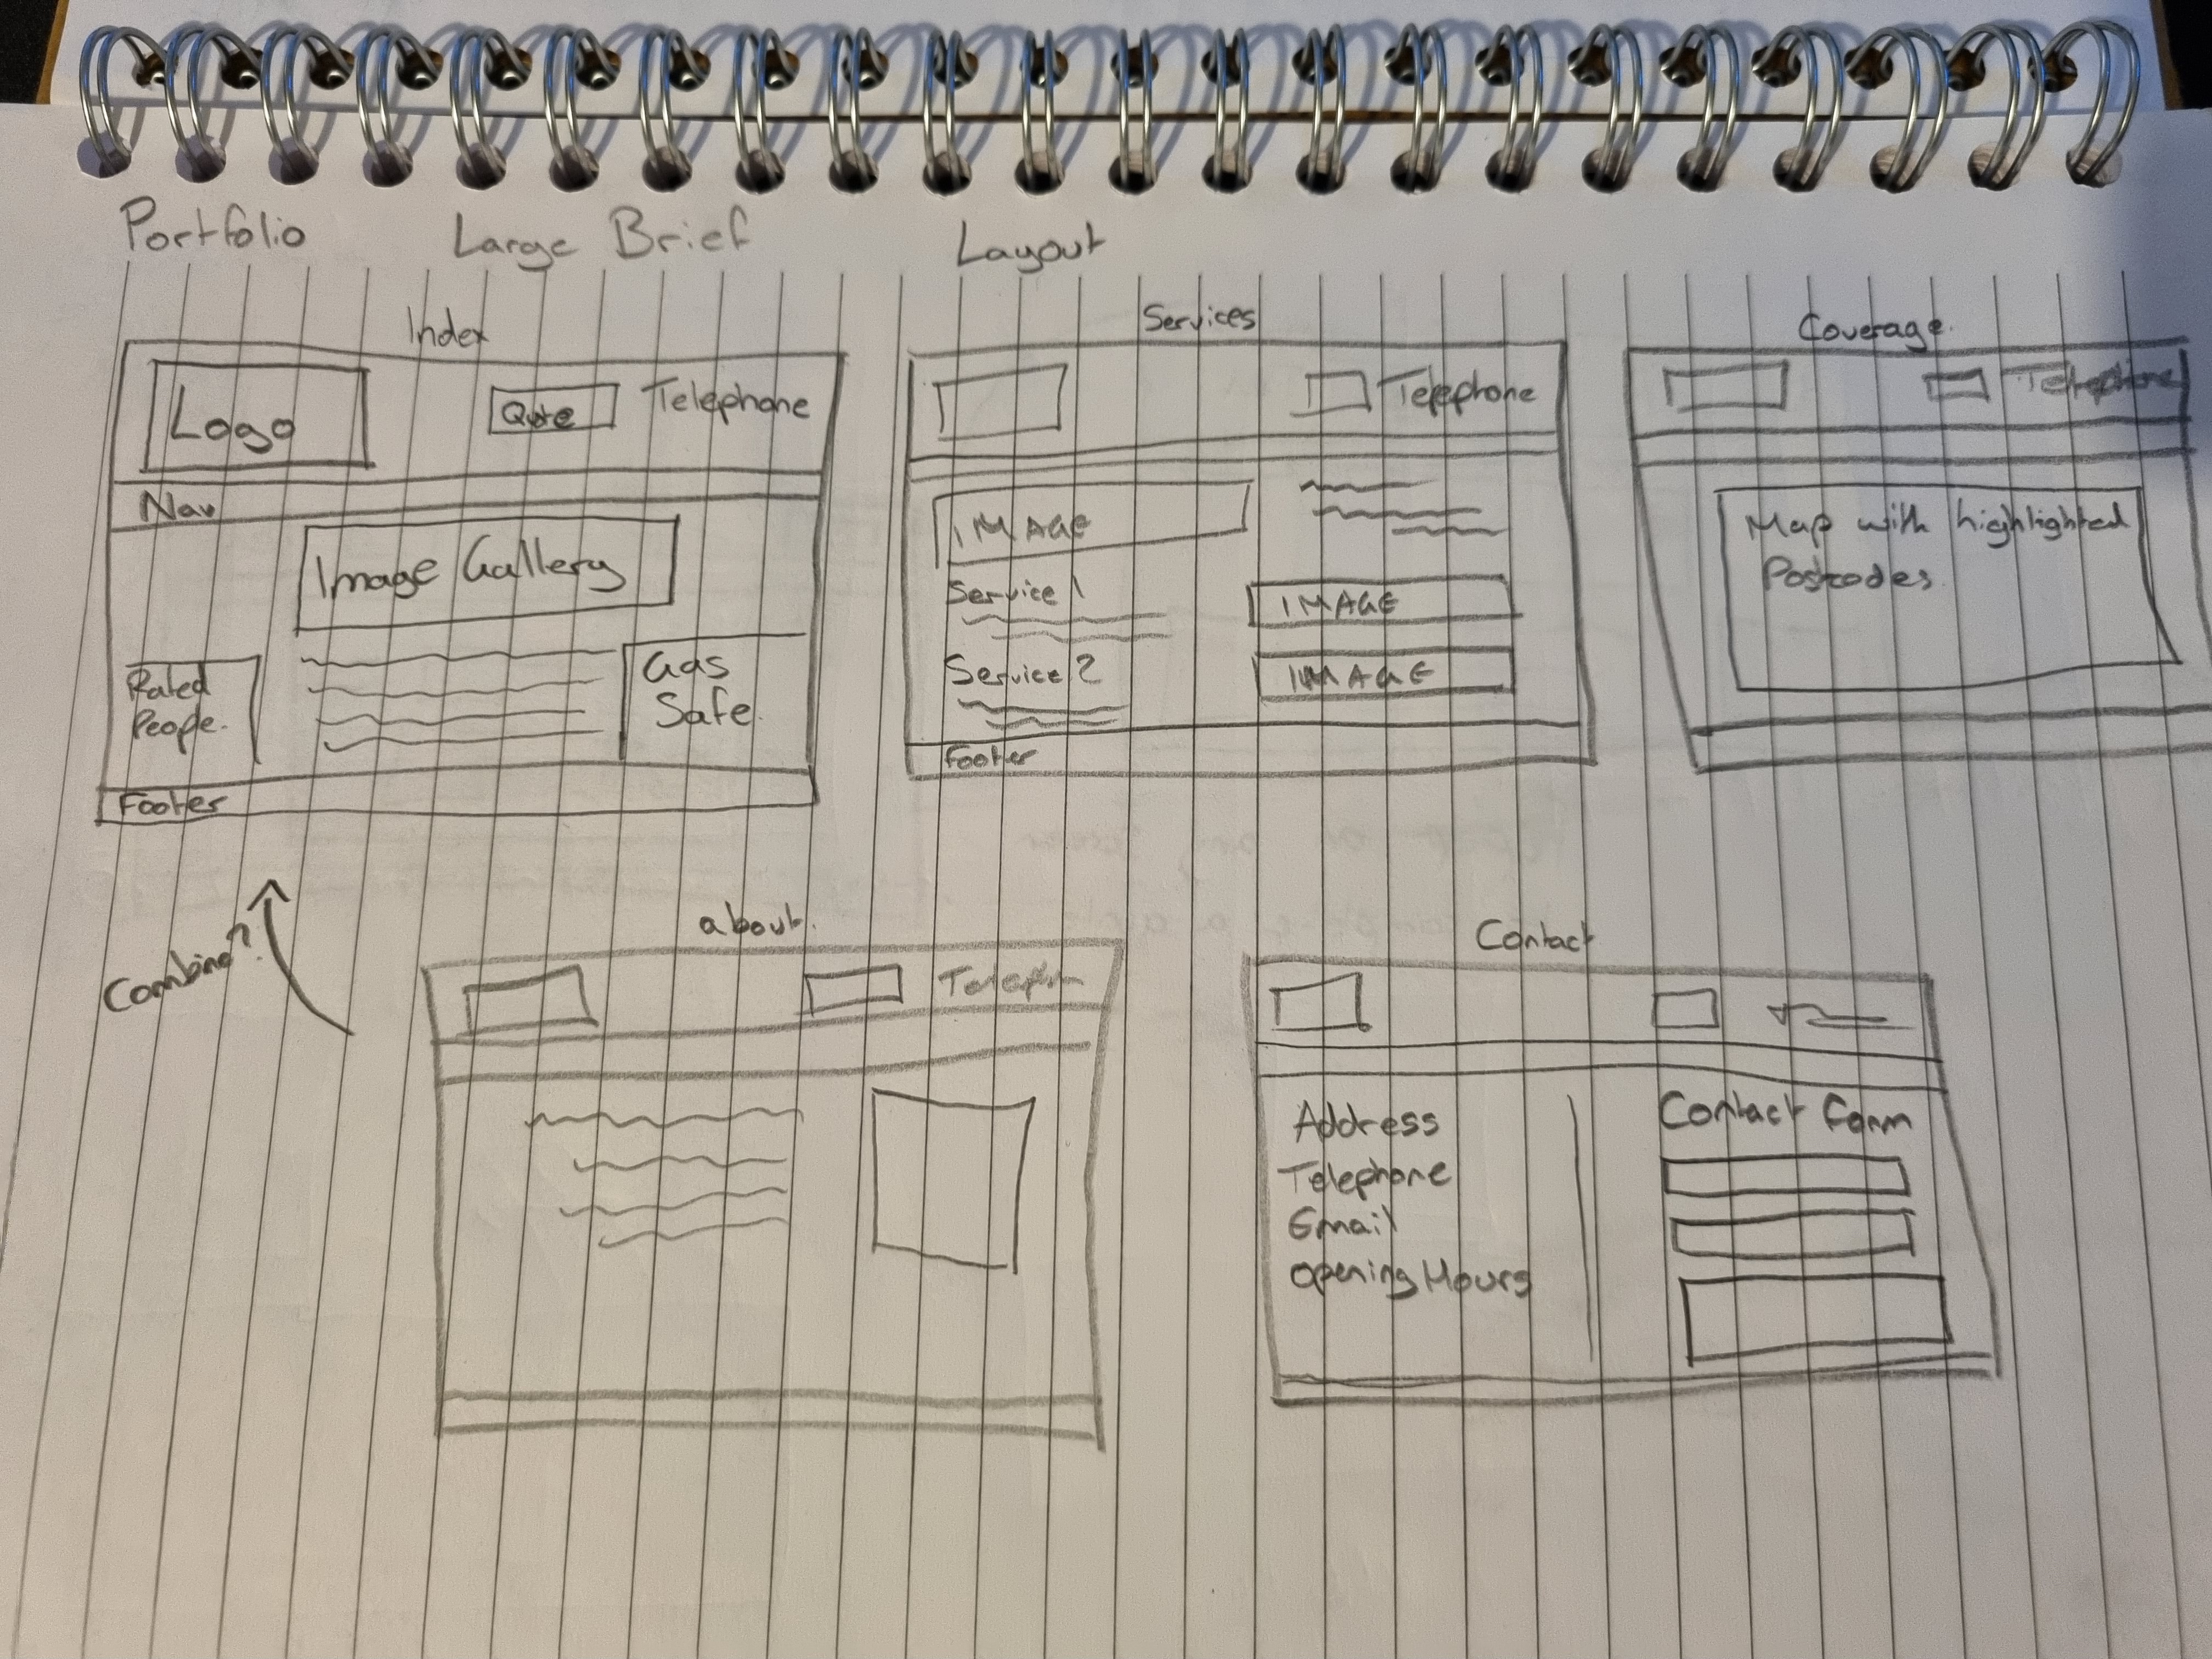 Portfolio Large Brief Layout
Index
Logo
Quote
Telephone
Nav
Image Gallery
Rated
People.
Gas
Safe.
Footer
Services
Telephone
IMAGE
Service 1
IMAGE
Service 2
IMAGE
Footer
Coverage.
Telephone
Map with highlighted
Postcodes
Combine?
about.
Contact
Address
Telephone
Email
Opening Hours
Contact Form